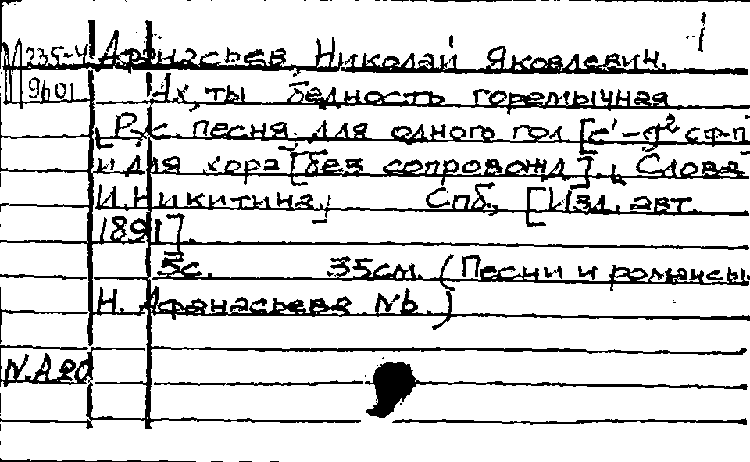 1
М 235-4 Афанасьев, Николай Яковлевич.
9601 Ах, ты бедность горемычная
[Рус. песня для одного гол [c¹-g² с ф-п]
и для хора [без сопровожд]. Слова
И. Никитина] Спб., [Изд. авт.
1891].
5с. 35см. (Песни и романсы
Н. Афанасьева №6.)
N.A20